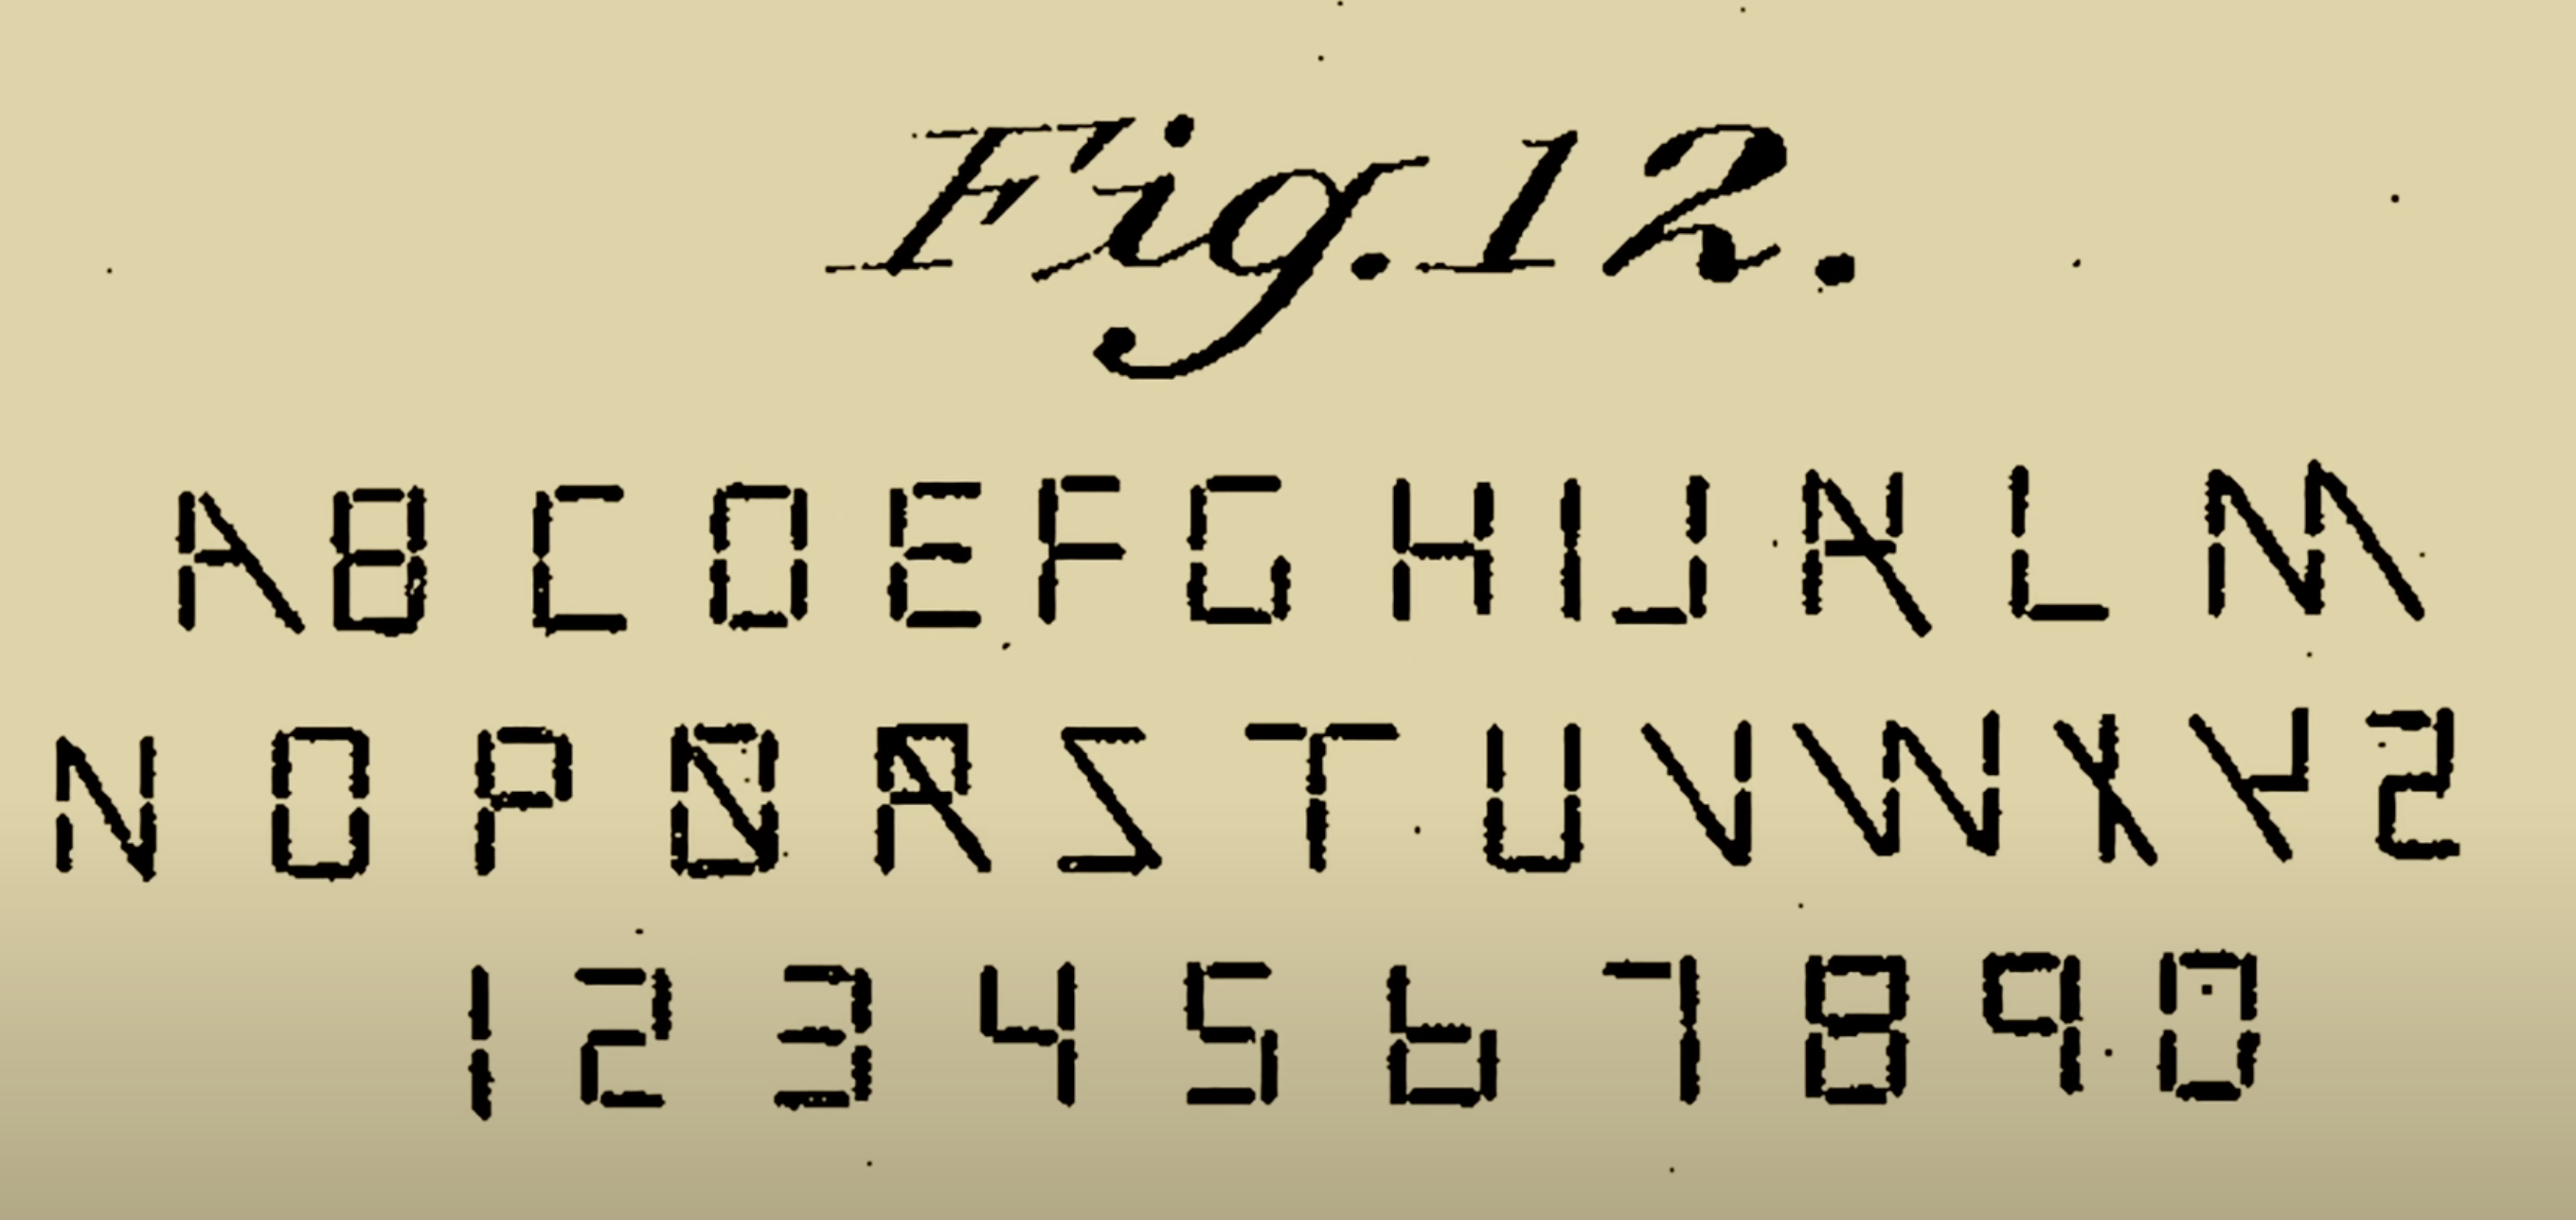 Fig. 12.
A B C D E F G H I J K L M
N O P Q R S T U V W X Y Z
1 2 3 4 5 6 7 8 9 0